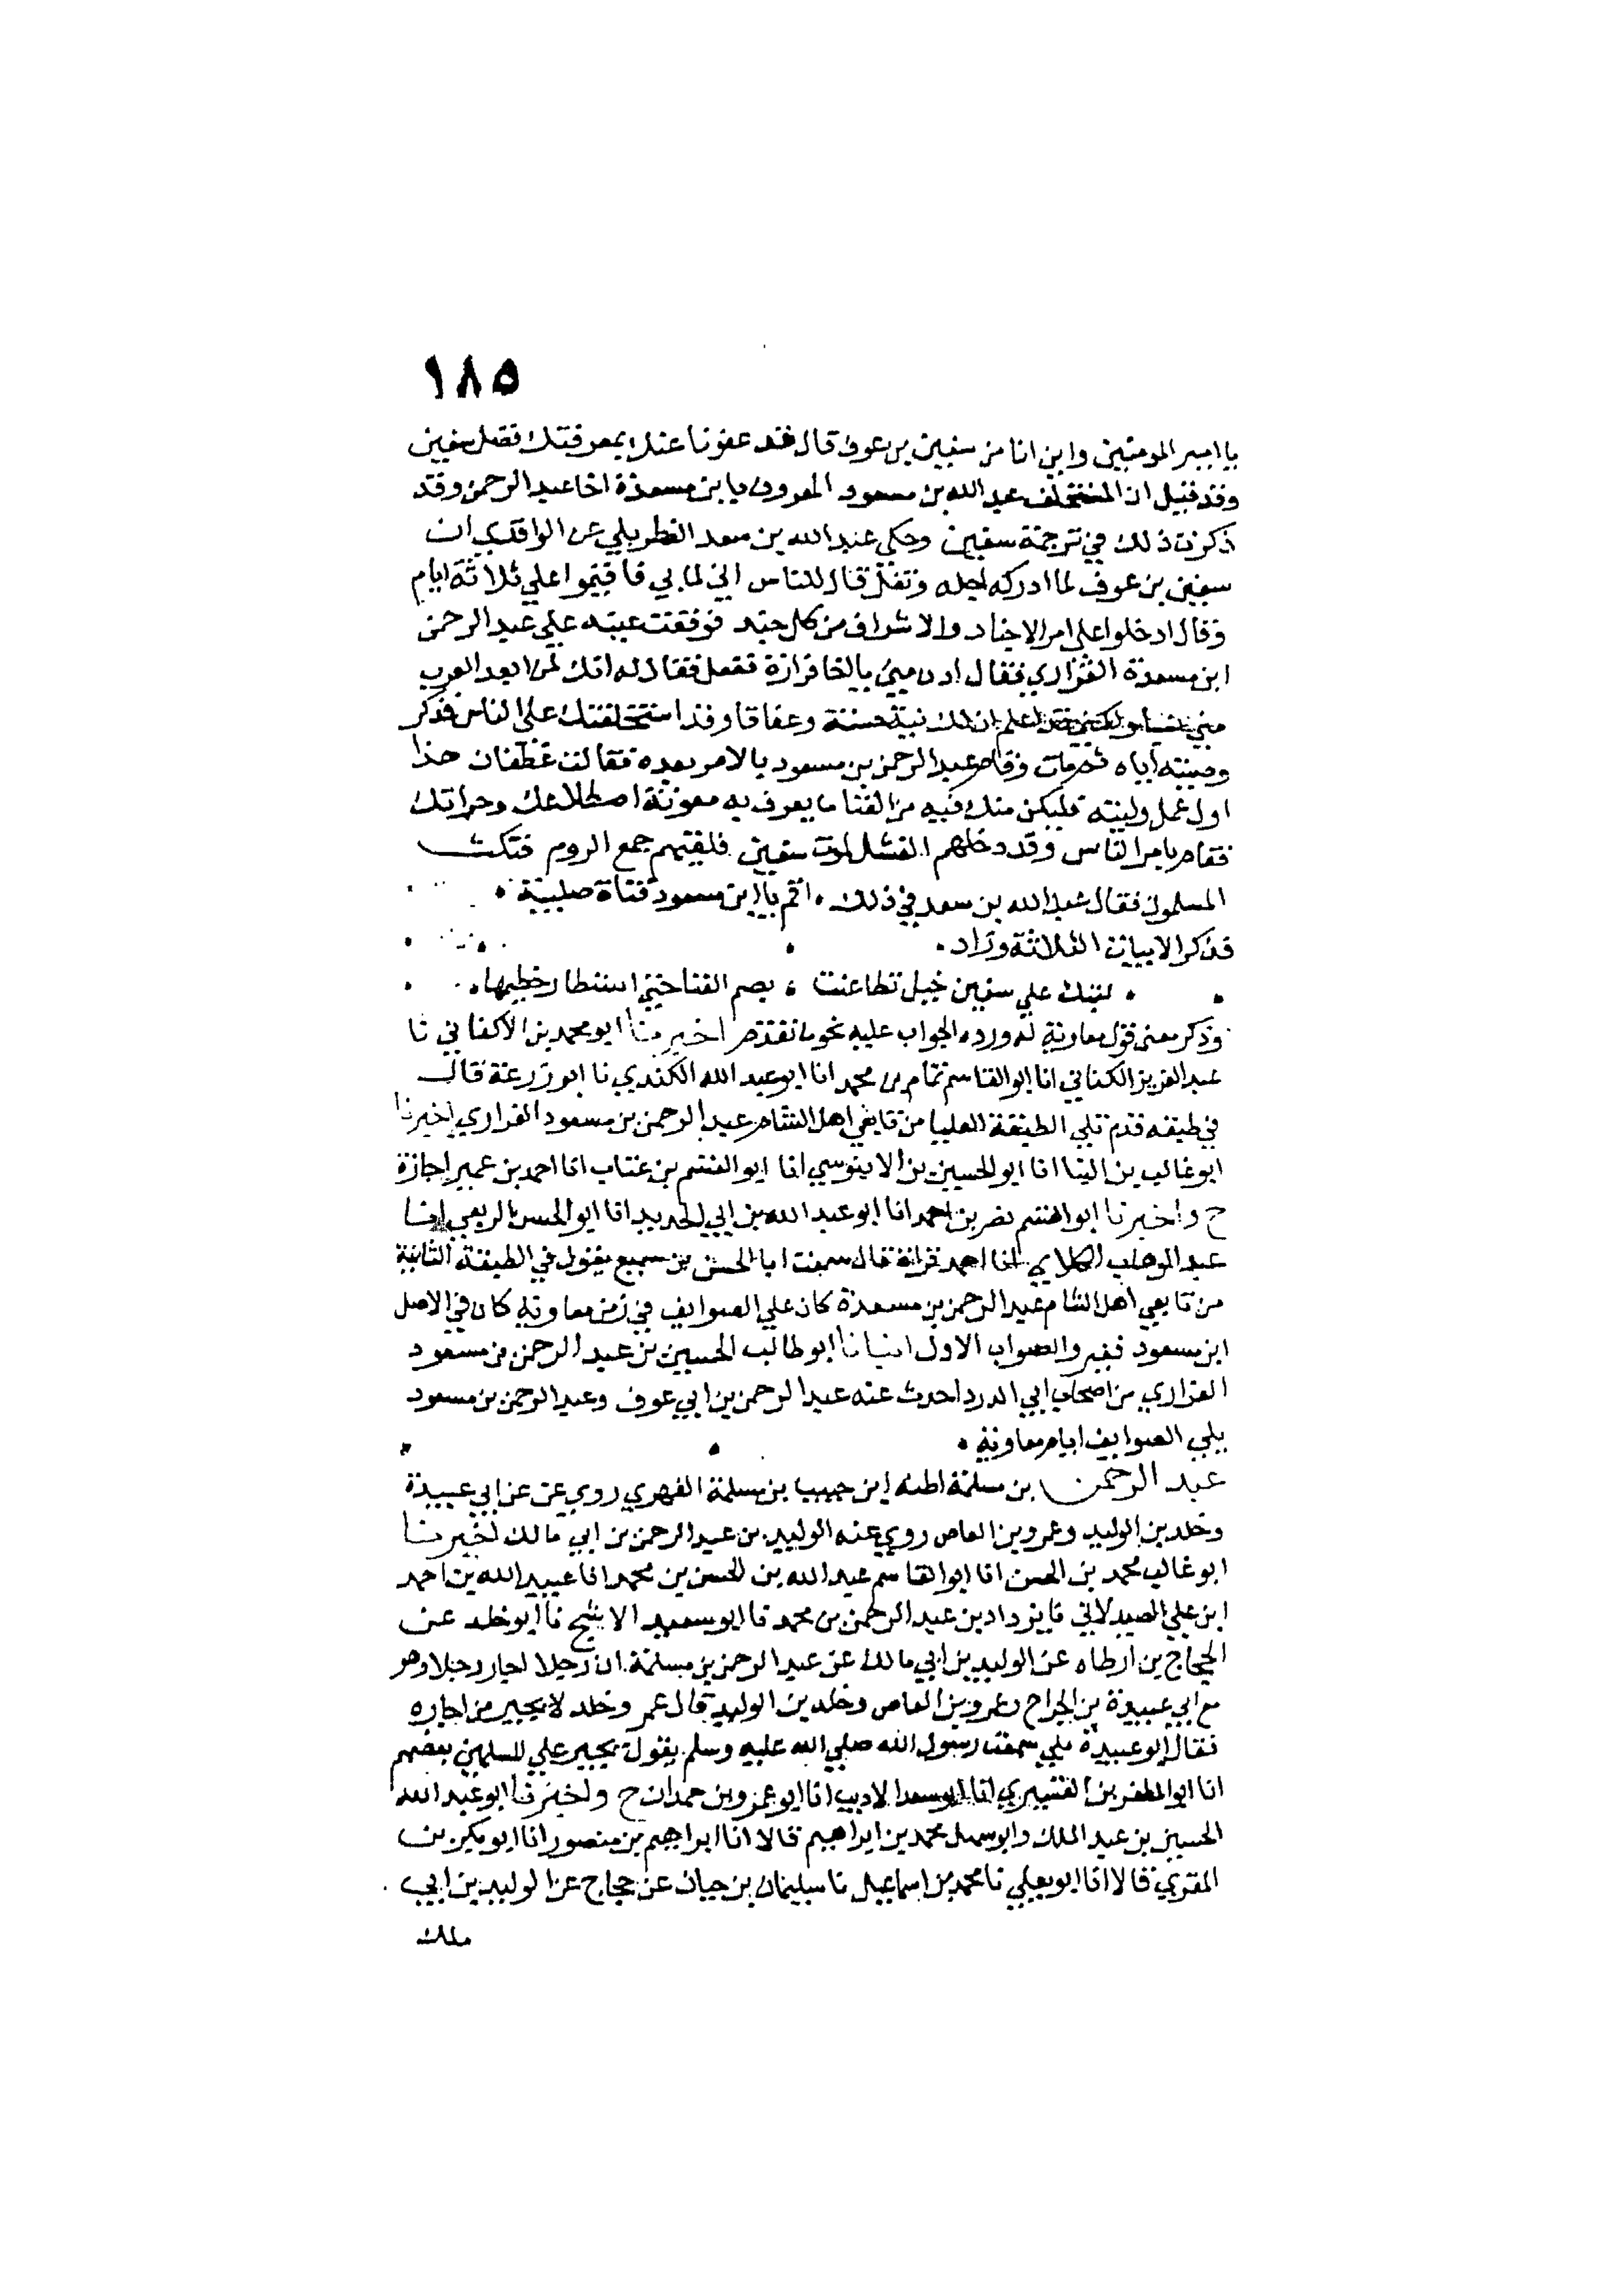 ١٨٥
يا امير المومنين واين انا من سفين بن عوف قال فقد عفونا عنك بمعرفتك فضل سفين
وقد قيل ان المستخلف عبد الله بن مسعود المعروف بابن مسعدة اخا عبد الرحمن وقد
ذكرت ذلك في ترجمة سفين وحكى عبد الله بن سعد القطربلي عن الواقدي ان
سفين بن عوف لما ادركه اجله وثقل قال للناس اني لما بي فاقيموا علي ثلاثة ايام
وقال ادخلوا علي امرا الاجناد والاشراف من كل جند فوقعت عينه علي عبد الرحمن
ابن مسعدة الفزاري فقال ادن مني يا اخا فزارة ففعل فقال له انك لمن ابعد العرب
مني نسبا ولكني قد اعلم ان لك نية حسنة وعفافا وقد استخلفتك علي الناس فذكر
وصيته اياه ثم مات وقام عبد الرحمن بن مسعود بالامر بعده فقالت غطفان هذا
اول عمل وليته فليكن منك فيه من الغنا ما يعرف به معونة اضطلاعك وجراتك
فقام بامر الناس وقد دخلهم الفشل لموت سفين فلقيهم جمع الروم فنكث
المسلمون فقال عبد الله بن سعد في ذلك ، اقم يا ابن مسعود قناة صليبة ،
فذكر الابيات الثلاثة وزاد .
، لينك علي سفين خيل تطاعنت ، بصم القنا حتي استطار خطيمها ،
وذكر معنى قول معاوية له ورده الجواب عليه نحو ما تقدم اخبرنا ابو محمد بن الاكفاني نا
عبد العزيز الكناني انا ابو القاسم تمام بن محمد انا ابو عبد الله الكندي نا ابو زرعة قال
في طبقه قدم تلي الطبقة العليا من تابعي اهل الشام عبد الرحمن بن مسعود الفزاري اخبرنا
ابو غالب بن البنا انا ابو الحسين بن الابنوسي انا ابو القسم بن عتاب انا احمد بن عمير اجازة
ح واخبرنا ابو القسم نصر بن احمد انا ابو عبد الله بن ابي الحديد انا ابو الحسن الربعي انا
عبد الوهاب الكلابي انا احمد قراة قال سمعت ابا الحسن بن سميع يقول في الطبقة الثانية
من تابعي اهل الشام عبد الرحمن بن مسعدة كان علي الصوايف في زمن معاوية كان في الاصل
ابن مسعود فغير والصواب الاول انبانا ابو طالب الحسين بن عبد الرحمن بن مسعود
الفزاري من اصحاب ابي الدردا حدث عنه عبد الرحمن بن ابي عوف وعبد الرحمن بن مسعود
يلي الصوايف ايام معاوية .
عبد الرحمن بن مسلمة اظنه ابن حبيب بن مسلمة الفهري روي عن عن ابي عبيدة
وخلد بن الوليد وعمرو بن العاص روي عنه الوليد بن عبد الرحمن بن ابي مالك اخبرنا
ابو غالب محمد بن الحسن انا ابو القاسم عبد الله بن الحسن بن محمد انا عبيد الله بن احمد
ابن علي الصيدلاني نا يزداد بن عبد الرحمن بن محمد نا ابو سعيد الاشج نا ابو خلد عن
الحجاج بن ارطاه عن الوليد بن ابي مالك عن عبد الرحمن بن مسلمة ان رجلا اجار رجلا وهو
مع ابي عبيدة بن الجراح وعمرو بن العاص وخلد بن الوليد قال عمر وخلد لا يجير من اجاره
فقال ابو عبيدة بلي سمعت رسول الله صلي الله عليه وسلم يقول يجير علي المسلمين بعضهم
انا ابو المظفر بن القشيري انا ابو سعد الاديب انا ابو عمرو بن حمدان ح واخبرنا ابو عبد الله
الحسين بن عبد الملك وابو سهل محمد بن ابراهيم قالا انا ابراهيم بن منصور انا ابو بكر بن
المقري قالا انا ابو يعلي نا محمد بن اسماعيل نا سليمان بن حيان عن حجاج عن الوليد بن ابي
ملك